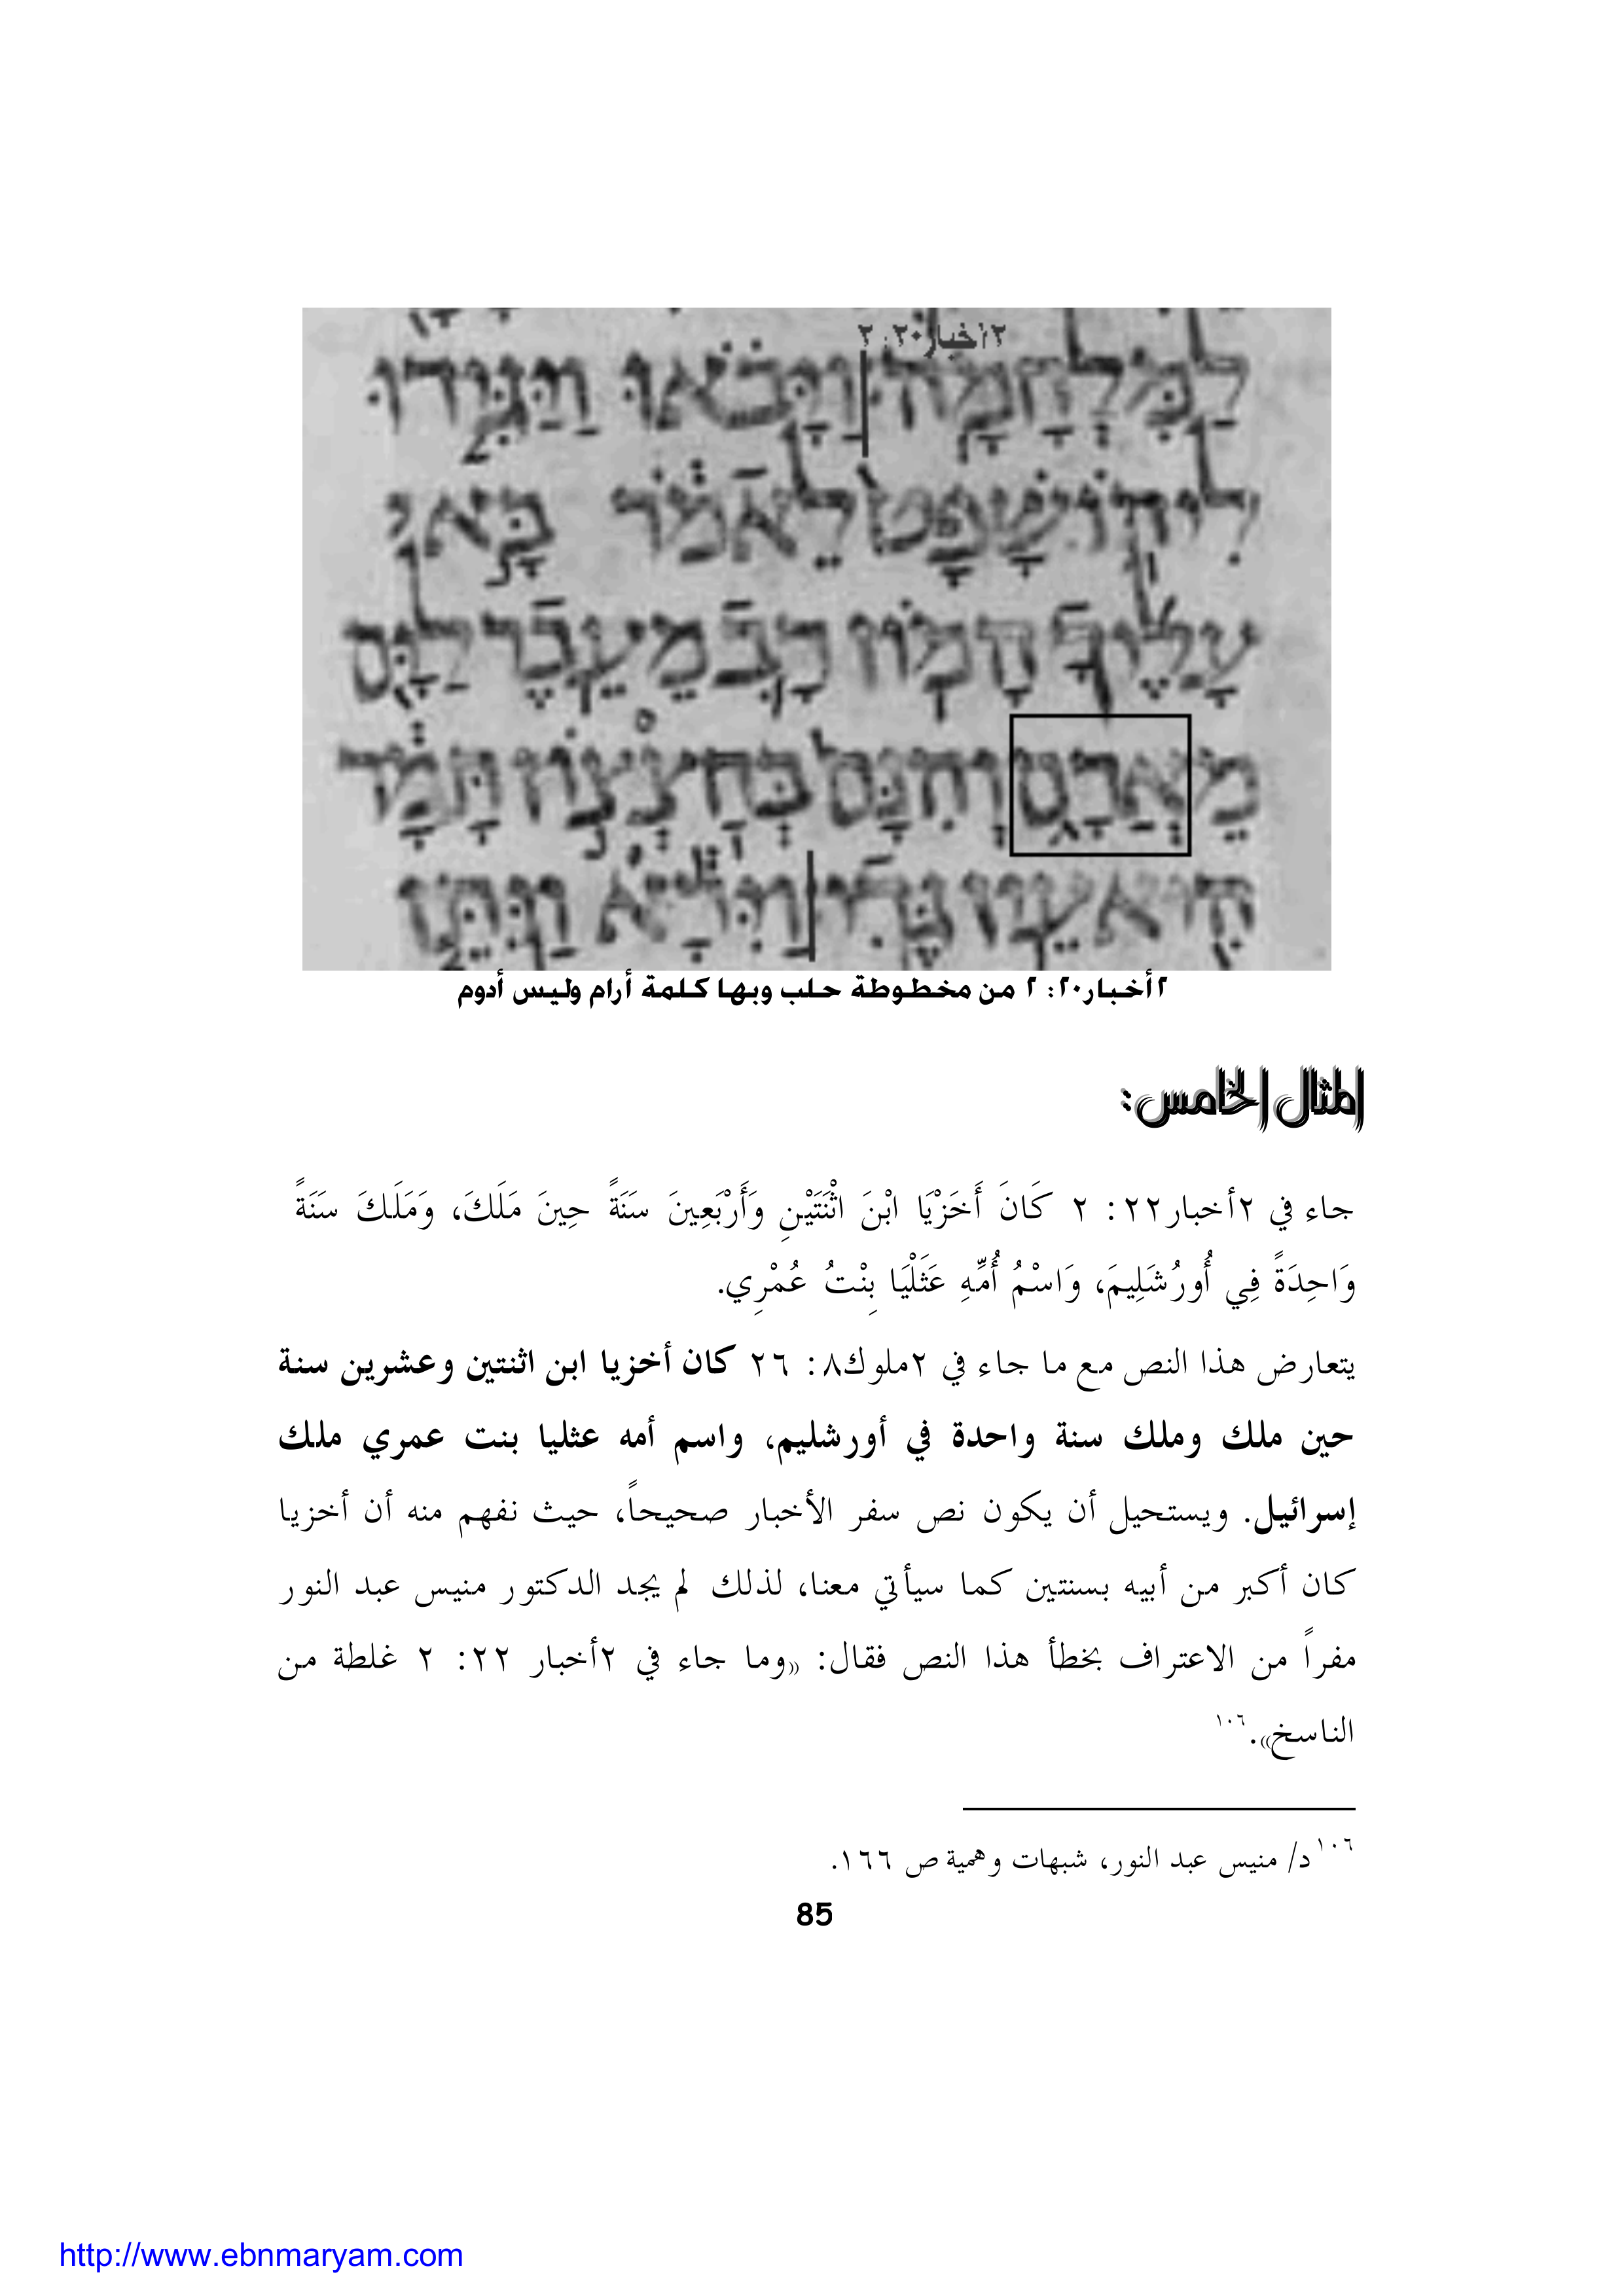 ٢أخبار٢٠: ٢
לַמִּלְחָמָה׃ וַיָּבֹאוּ וַיַּגִּידוּ
לִיהוֹשָׁפָט לֵאמֹר בָּא
עָלֶיךָ הָמוֹן רָב מֵעֵבֶר לַיָּם
מֵאֲרָם וְהִנָּם בְּחַצְצוֹן תָּמָר
הִיא עֵין גֶּדִי׃ וַיִּרָא וַיִּתֵּן
٢أخبار٢٠: ٢ من مخطوطة حلب وبها كلمة أرام وليس أدوم
المثال الخامس:
جاء في ٢أخبار٢٢: ٢ كَانَ أَخَزْيَا ابْنَ اثْنَتَيْنِ وَأَرْبَعِينَ سَنَةً حِينَ مَلَكَ، وَمَلَكَ سَنَةً
وَاحِدَةً فِي أُورُشَلِيمَ، وَاسْمُ أُمِّهِ عَثَلْيَا بِنْتُ عُمْرِي.
يتعارض هذا النص مع ما جاء في ٢ملوك٨: ٢٦ كان أخزيا ابن اثنتين وعشرين سنة
حين ملك وملك سنة واحدة في أورشليم، واسم أمه عثليا بنت عمري ملك
إسرائيل. ويستحيل أن يكون نص سفر الأخبار صحيحاً، حيث نفهم منه أن أخزيا
كان أكبر من أبيه بسنتين كما سيأتي معنا، لذلك لم يجد الدكتور منيس عبد النور
مفراً من الاعتراف بخطأ هذا النص فقال: «وما جاء في ٢أخبار ٢٢: ٢ غلطة من
الناسخ».١٠٦
١٠٦ د/ منيس عبد النور، شبهات وهمية ص ١٦٦.
85
http://www.ebnmaryam.com